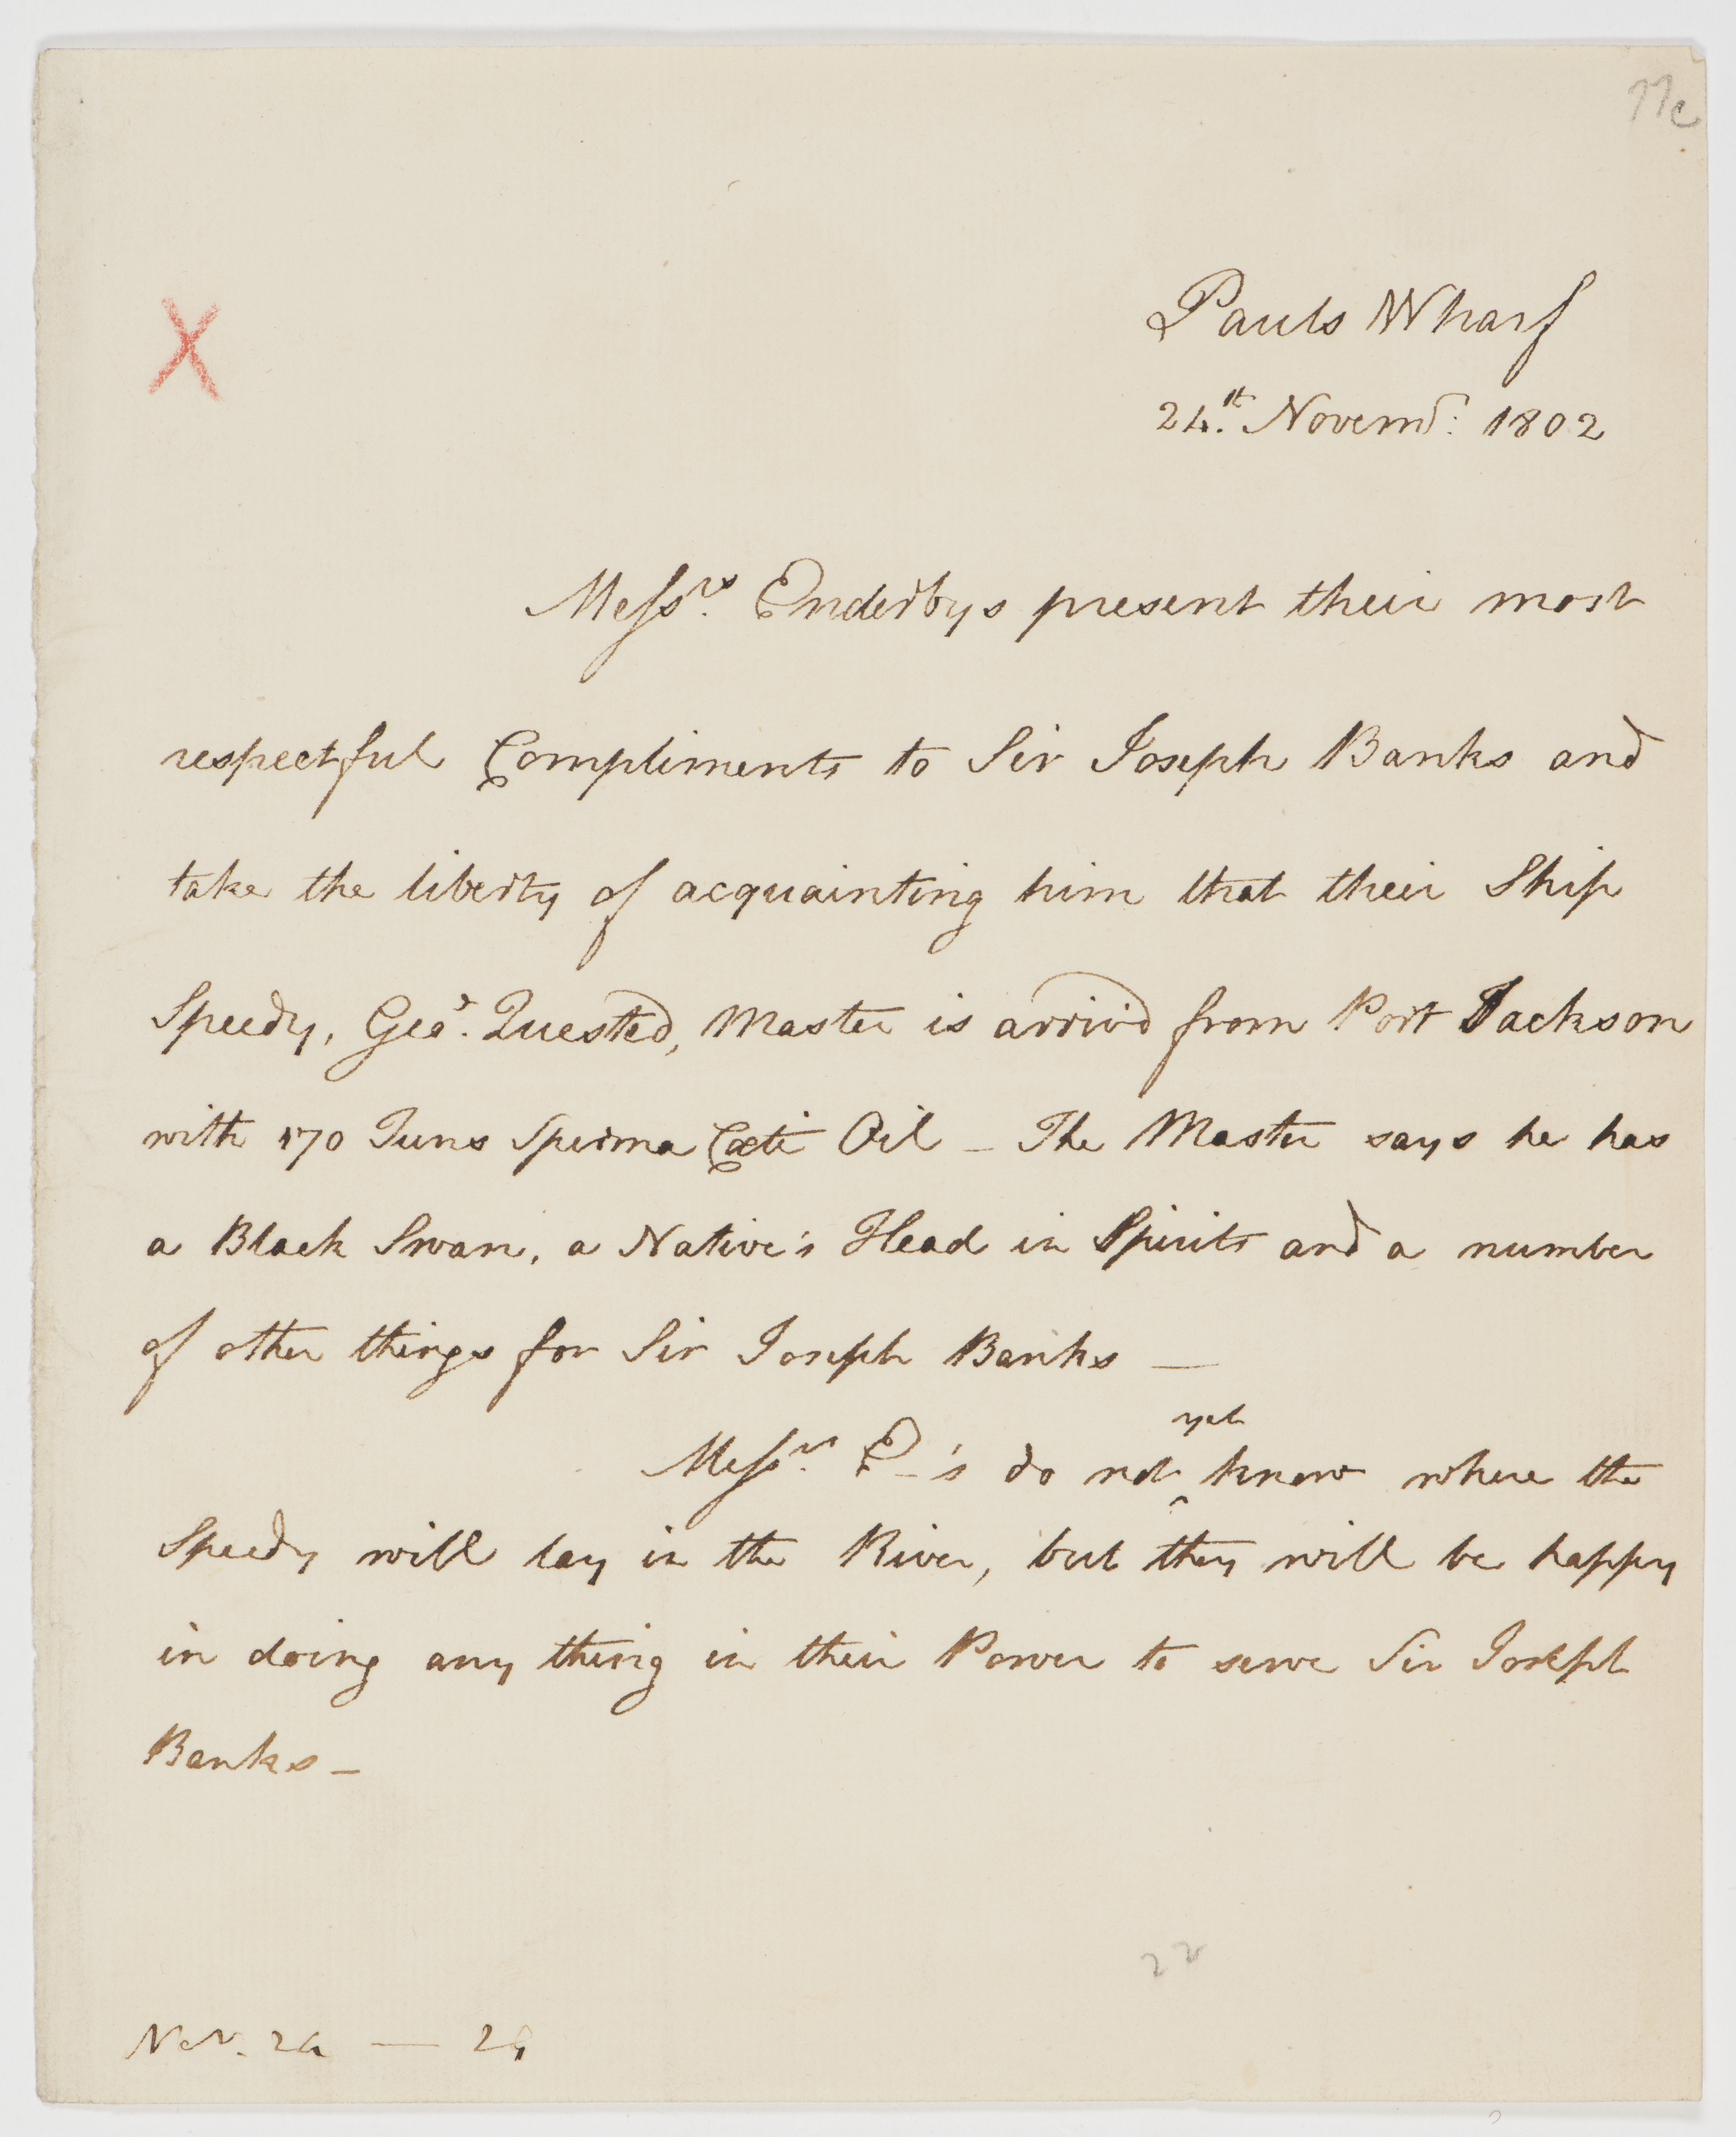 77c
Pauls Wharf
24.th Novemr. 1802
Messrs. Enderbys present their most
respectful Compliments to Sir Joseph Banks and
take the liberty of acquainting him that their Ship
Speedy, Geo. Quested, Master is arriv'd from Port Jackson
with 170 Tuns Sperma Cœti Oil _ The Master says he has
a Black Swan, a Native's Head in Spirits and a number
of other things for Sir Joseph Banks —
Messrs. E_'s do not yet know where the
Speedy will lay in the River, but they will be happy
in doing any thing in their Power to serve Sir Joseph
Banks _
22
Nov. 24 —